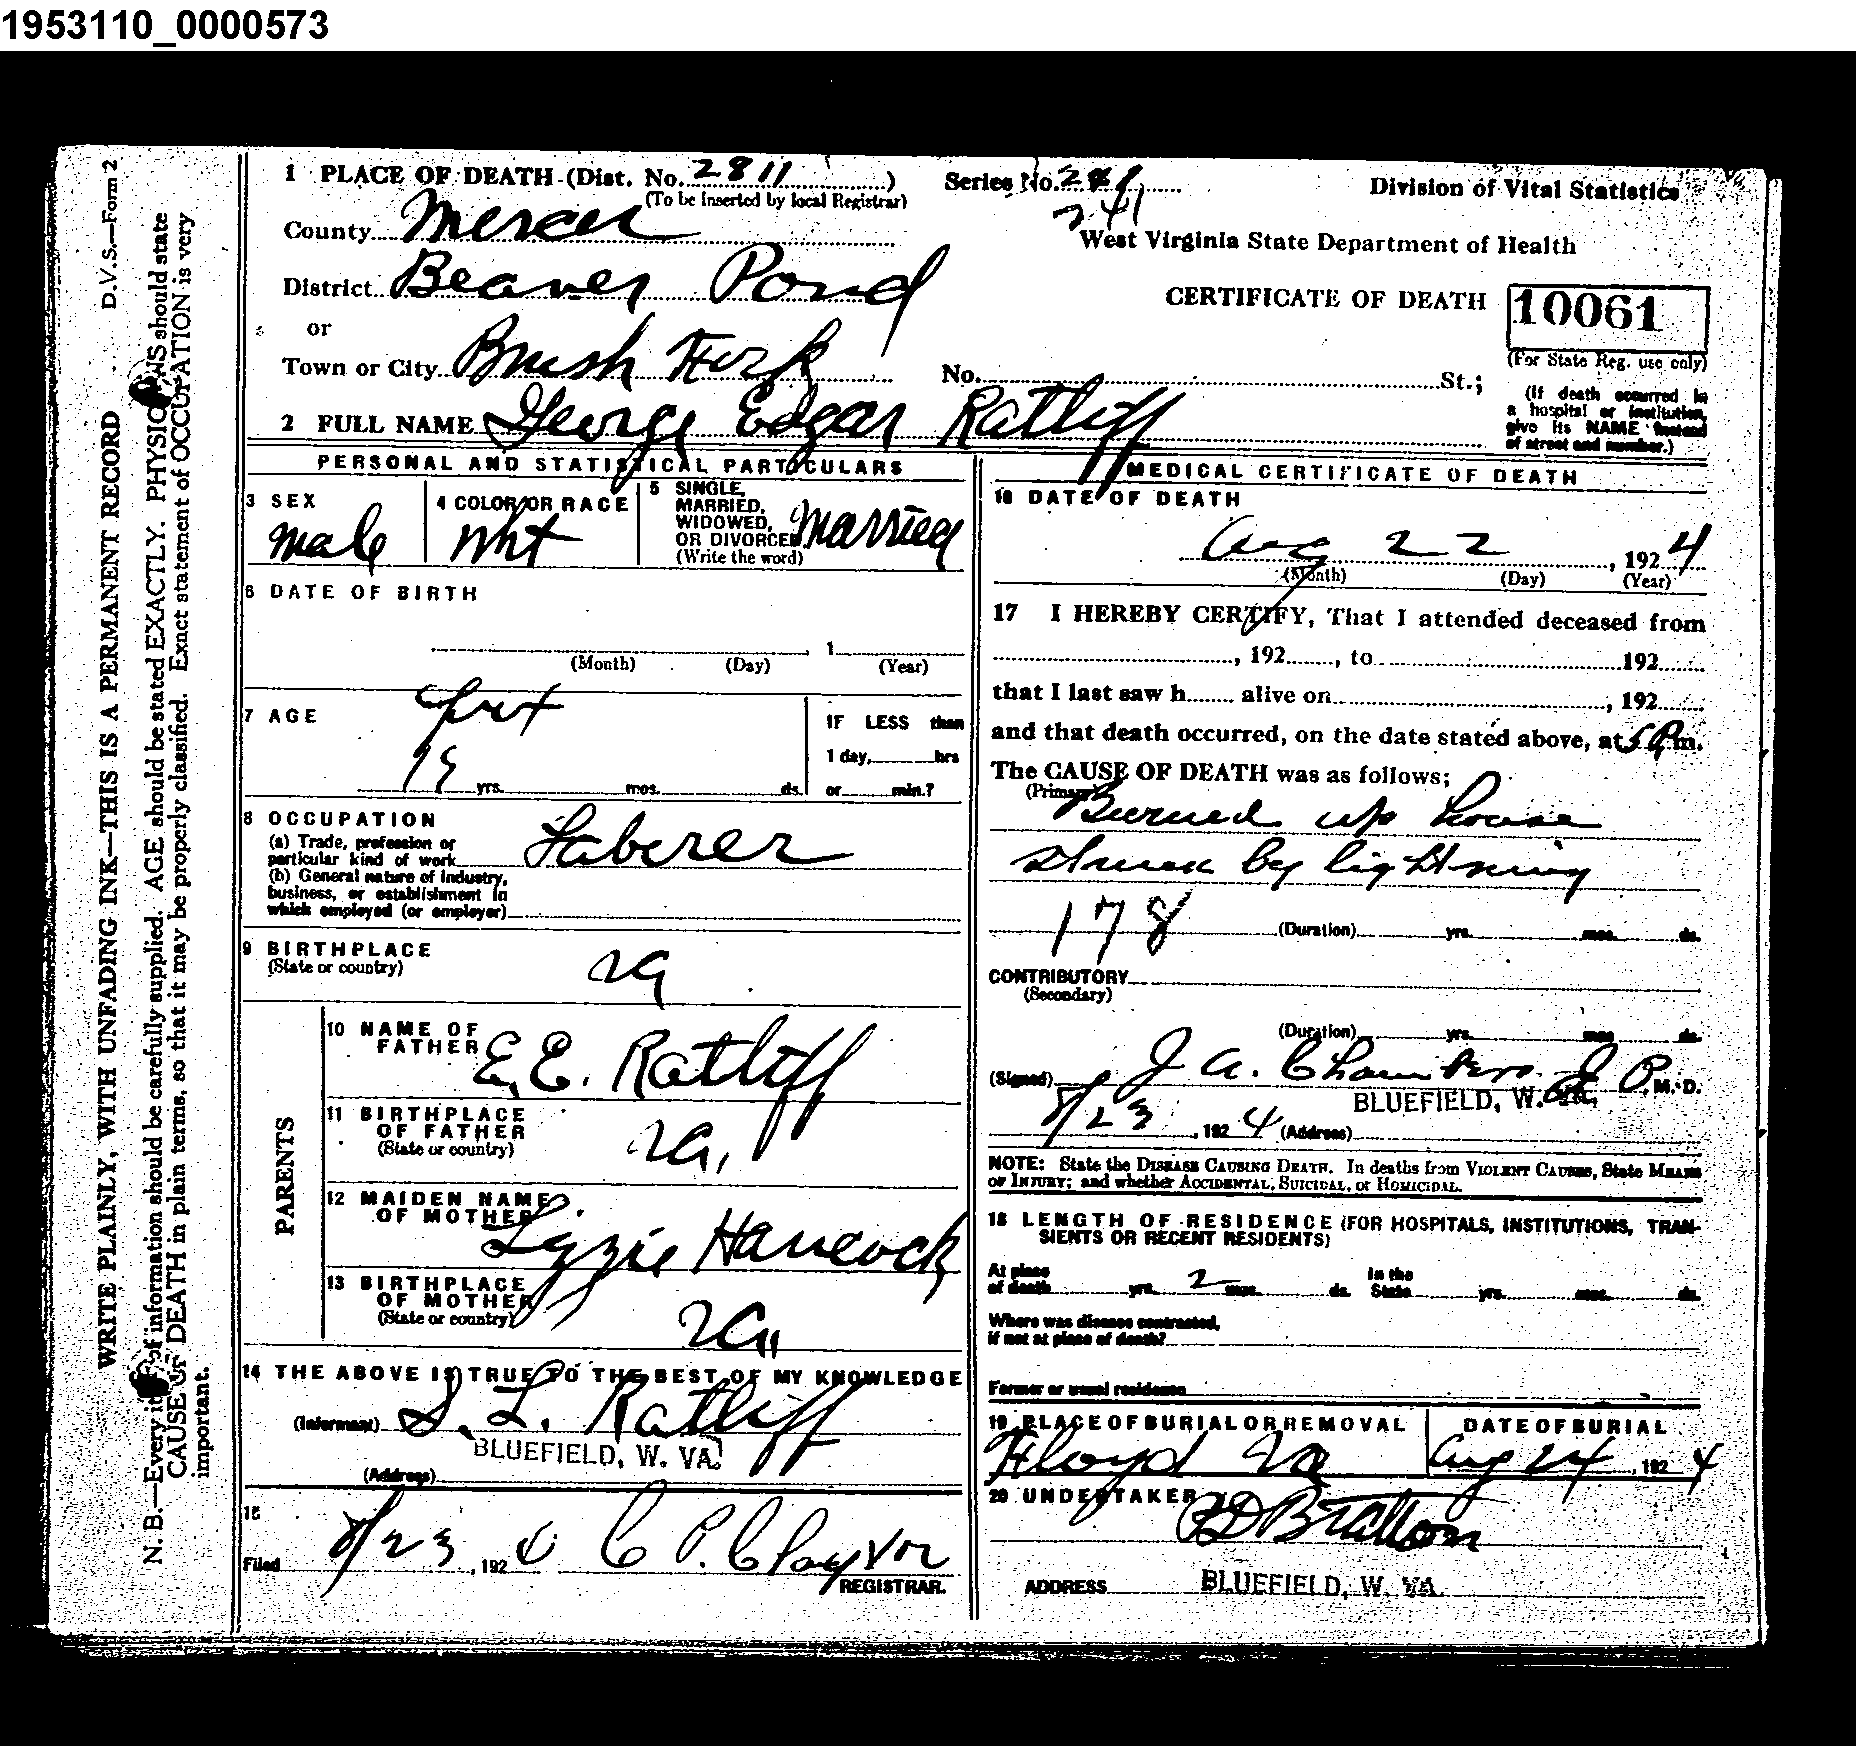 1953110_0000573
D.V.S.—Form 2
WRITE PLAINLY, WITH UNFADING INK—THIS IS A PERMANENT RECORD
N. B.—Every item of information should be carefully supplied. AGE should be stated EXACTLY. PHYSICIANS should state
CAUSE OF DEATH in plain terms, so that it may be properly classified. Exact statement of OCCUPATION is very
important.
1 PLACE OF DEATH (Dist. No. 2811)
(To be inserted by local Registrar)
Series No. 241
241
Division of Vital Statistics
County Mercer
West Virginia State Department of Health
District Beaver Pond
CERTIFICATE OF DEATH 10061
(For State Reg. use only)
or
Town or City Brush Fork No. St.;
(If death occurred in
a hospital or institution,
give its NAME instead
of street and number.)
2 FULL NAME George Edgar Ratliff
PERSONAL AND STATISTICAL PARTICULARS
3 SEX
male
4 COLOR OR RACE
Wht
5 SINGLE,
MARRIED,
WIDOWED,
OR DIVORCED
(Write the word)
Married
6 DATE OF BIRTH
1
(Month) (Day) (Year)
7 AGE
yrs. mos. ds.
IF LESS than
1 day, hrs
or min.?
8 OCCUPATION
(a) Trade, profession or
particular kind of work Laborer
(b) General nature of industry,
business, or establishment in
which employed (or employer)
9 BIRTHPLACE
(State or country)
Va
PARENTS
10 NAME OF
FATHER E. E. Ratliff
11 BIRTHPLACE
OF FATHER
(State or country)
Va.
12 MAIDEN NAME
OF MOTHER
Lizzie Hancock
13 BIRTHPLACE
OF MOTHER
(State or country)
Va
14 THE ABOVE IS TRUE TO THE BEST OF MY KNOWLEDGE
(Informant) S. L. Ratliff
BLUEFIELD, W. VA.
(Address)
15
Filed 8/23, 1924 C P. Clay
REGISTRAR.
MEDICAL CERTIFICATE OF DEATH
16 DATE OF DEATH
Aug 22, 1924
(Month) (Day) (Year)
17 I HEREBY CERTIFY, That I attended deceased from
, 192 , to 192
that I last saw h alive on , 192
and that death occurred, on the date stated above, at 5 P.m.
The CAUSE OF DEATH was as follows;
(Primary)
Burned up house
struck by lightning
178 (Duration) yrs. mos. ds.
CONTRIBUTORY
(Secondary)
(Duration) yrs. mos. ds.
(Signed) J. A. Chambers J P. M. D.
BLUEFIELD, W. VA.
8/23, 1924 (Address)
NOTE: State the DISEASE CAUSING DEATH. In deaths from VIOLENT CAUSES, State MEANS
OF INJURY; and whether ACCIDENTAL, SUICIDAL, or HOMICIDAL.
18 LENGTH OF RESIDENCE (FOR HOSPITALS, INSTITUTIONS, TRAN-
SIENTS OR RECENT RESIDENTS)
At place
of death yrs. 2 mos. ds.
In the
State yrs. mos. ds.
Where was disease contracted,
if not at place of death?
Former or usual residence
19 PLACE OF BURIAL OR REMOVAL
Floyd Va
DATE OF BURIAL
Aug 24, 1924
20 UNDERTAKER
ADDRESS BLUEFIELD, W. VA.